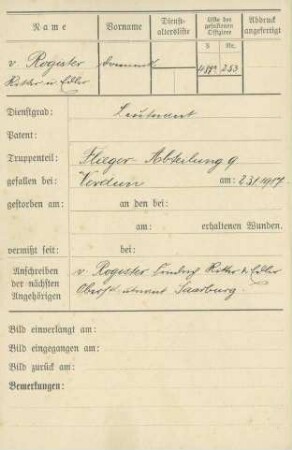 Name Vorname Dienst-altersliste Liste der gefallenen Offiziere Abdruck angefertigt
S. Nr.
v. Register
Ritter u. Edler 253
Dienstgrad: Leutnant
Patent:
Truppenteil: Flieger-Abteilung 9
gefallen bei: Verdun am: 23/1 1917
gestorben am: an den bei:
am: erhaltenen Wunden.
vermißt seit: bei:
Anschreiben der nächsten Angehörigen
v. Register Ritter u. Edler
Oberstleutnant Saarburg.
Bild einverlangt am:
Bild eingegangen am:
Bild zurück am:
Bemerkungen: